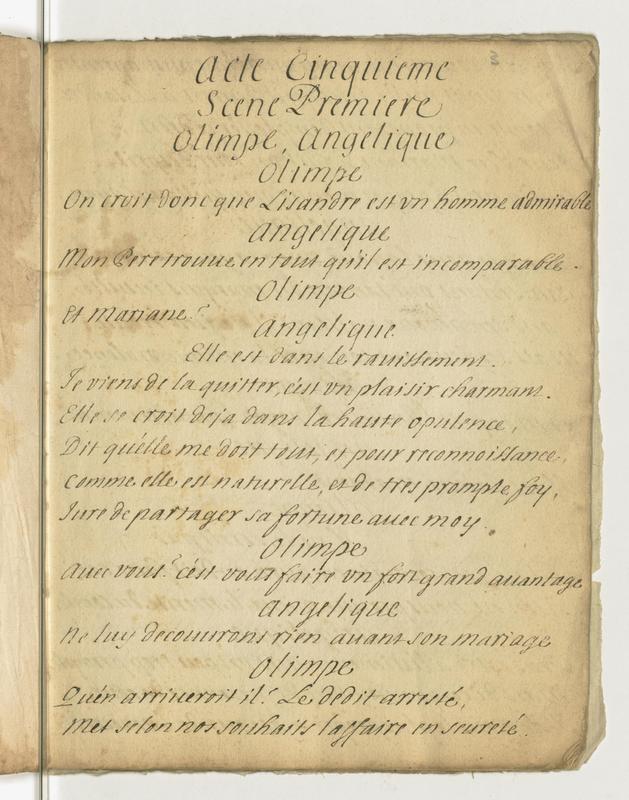 3
Acte Cinquieme
Scene Premiere
Olimpe, Angelique
Olimpe
On croit donc que Lisandre est vn homme admirable
Angelique
Mon Pere trouue en tout qu'il est incomparable.
Olimpe
Et Mariane?
Angelique
Elle est dans le rauissement.
Je viens de la quitter, c'est vn plaisir charmant.
Elle se croit deja dans la haute opulence,
Dit qu'elle me doit tout, et pour reconnoissance,
Comme elle est naturelle, et de tres prompte foy,
Jure de partager sa fortune auec moy.
Olimpe
Auec vous? c'est vous faire vn fort grand auantage
Angelique
Ne luy decouurons rien auant son mariage
Olimpe
Qu'en arriueroit il? Le dedit arresté,
Met selon nos souhaits l'affaire en seureté.